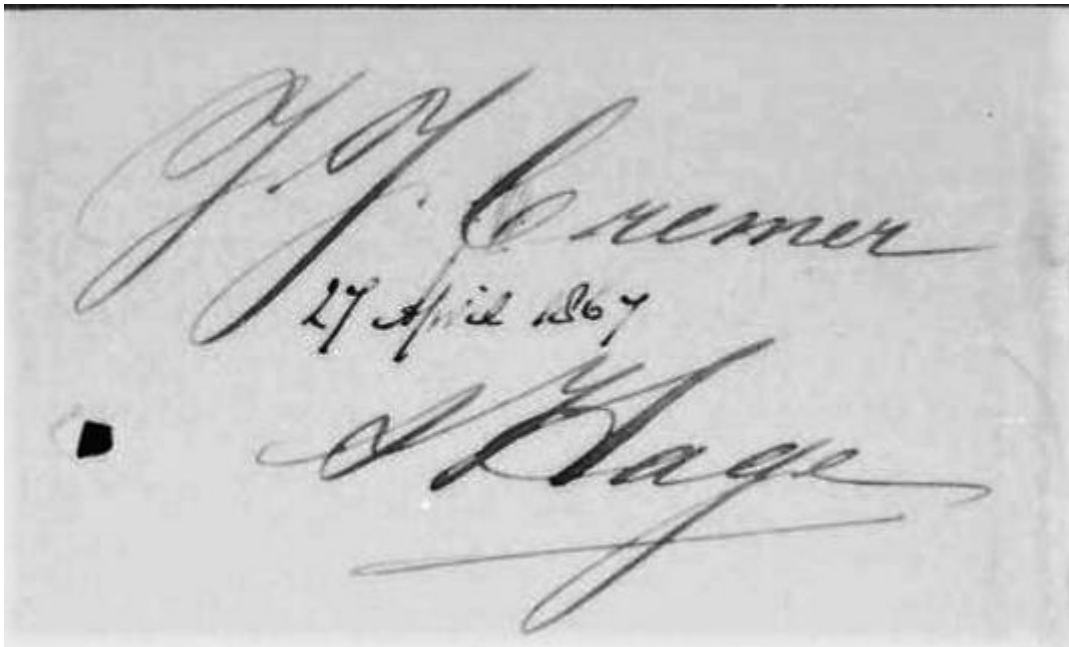 J. J. Cremer
27 April 1867
s Hage